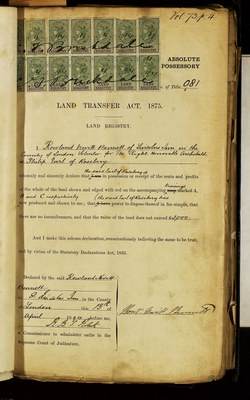 Vol 73 p 4
ABSOLUTE
POSSESSORY
of Title. 081
LAND TRANSFER ACT, 1875.
LAND REGISTRY.
I Rowland Nevitt Bennett of Lincolns Inn in the
County of London Solicitor for the Right Honorable Archibald
Philip Earl of Rosebery
the said Earl of Rosebery is
solemnly and sincerely declare that I am in possession or receipt of the rents and profits
of the whole of the land shown and edged with red on the accompanying marked A,
B and C respectively the said Earl of Rosebery has
now produced and shown to me; that power to dispose thereof in fee simple, that
there are no incumbrances, and that the value of the land does not exceed
And I make this solemn declaration, conscientiously believing the same to be true,
and by virtue of the Statutory Declarations Act, 1835.
Declared by the said Rowland Nevitt
Bennett
Lincolns Inn, in the County
of London this 19th
April before me,
A Commissioner to administer oaths in the
Supreme Court of Judicature.
Rowld Nevitt Bennett